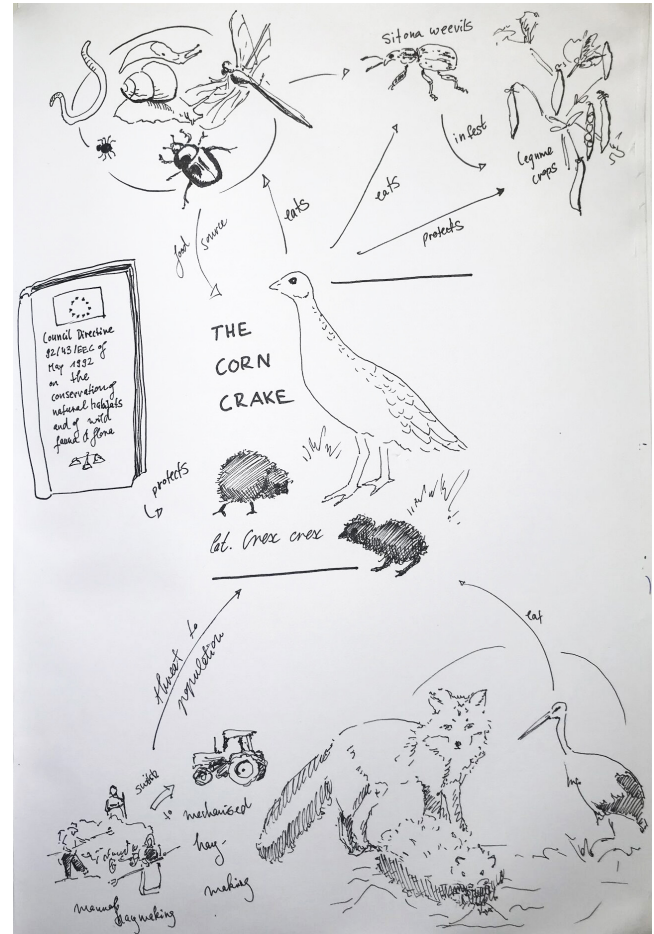 sitona weevils
infest
legume
crops
eats
eats
protects
food source
THE
CORN
CRAKE
Council Directive
92/43/EEC of
May 1992
on the
conservation of
natural habitats
and of wild
fauna & flora
protects
lat. Crex crex
eat
threat to
population
switch
to
mechanised
hay-
making
manual
haymaking